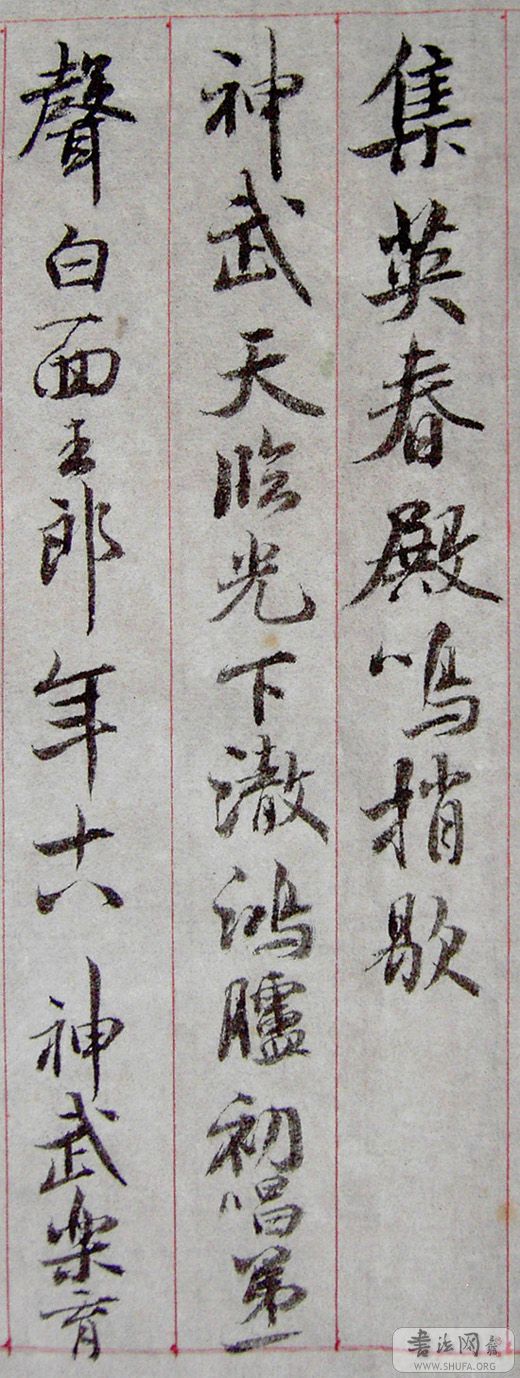 集英春殿鳴捎歇
神武天臨光下澈鴻臚初唱第一
聲白面王郎年十八神武樂育
書法网
WWW.SHUFA.ORG